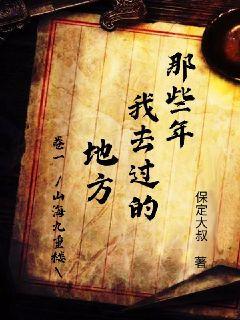 那些年
我去过的
地方
卷一/山海九重楼\
保定大叔 著